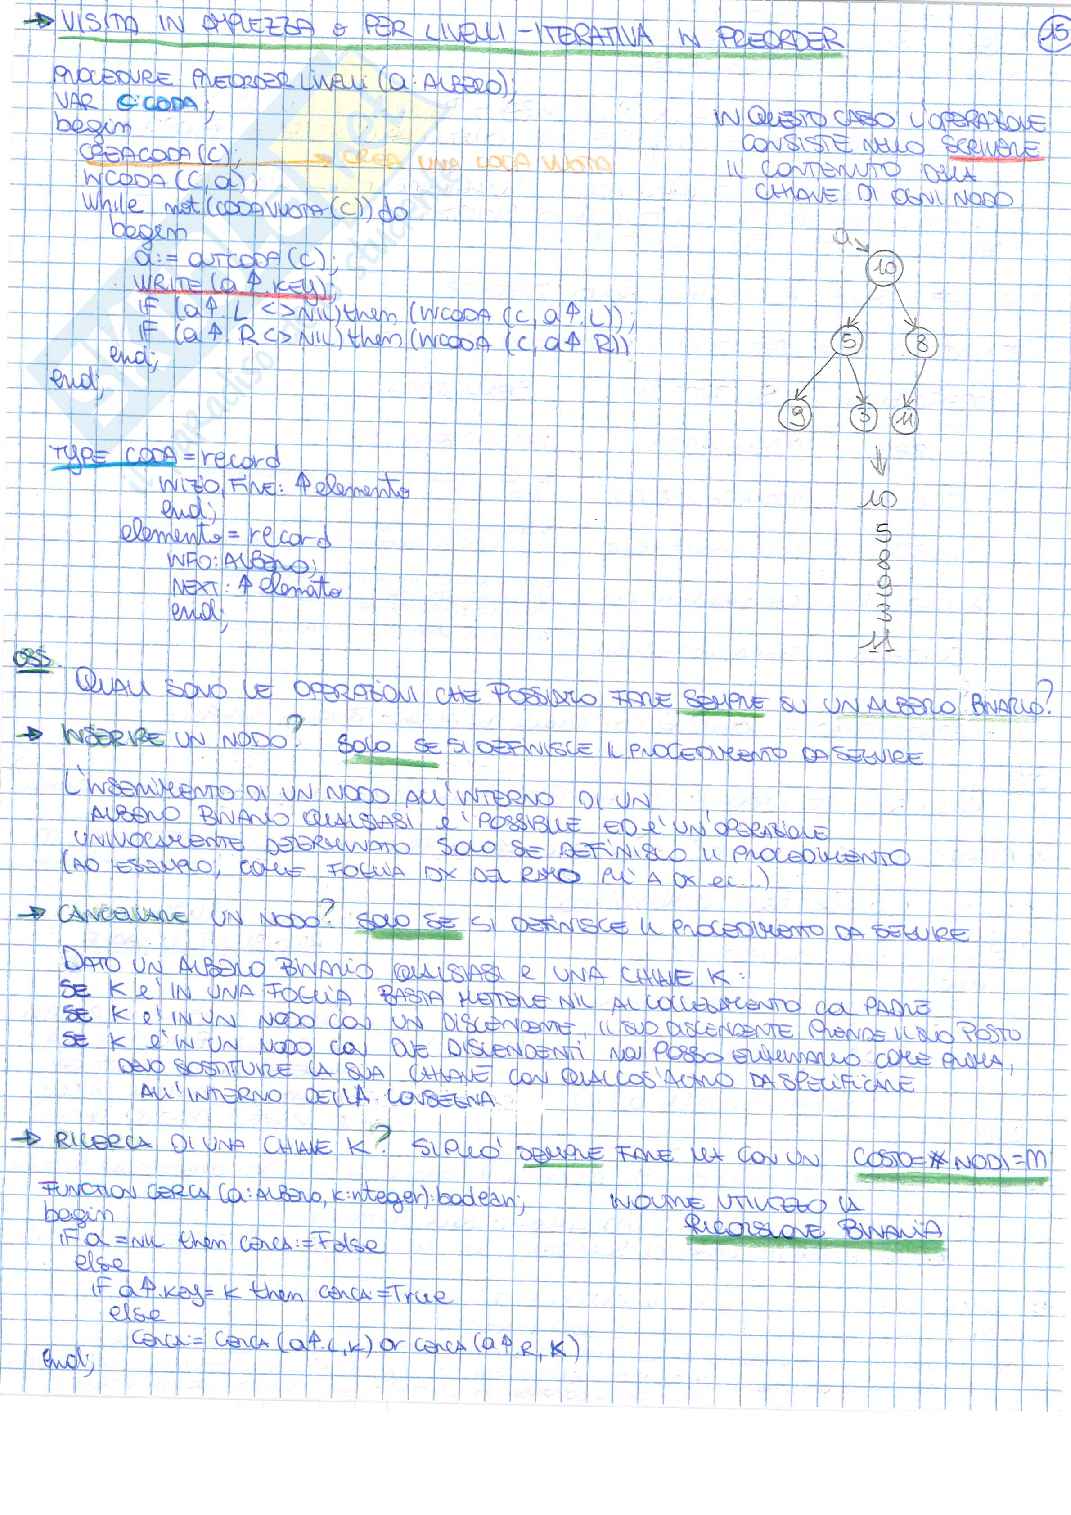 → VISITA IN AMPIEZZA O PER LIVELLI - ITERATIVA IN PREORDER
15
PROCEDURE PREORDERLIVELLI (a: ALBERO);
VAR C: CODA;
begin
CREACODA (C); → CREA UNA CODA VUOTA
INCODA (C, a);
while not (CODAVUOTA (C)) do
begin
a := OUTCODA (C);
WRITE (a↑.KEY);
IF (a↑.L <> NIL) then (INCODA (C, a↑.L));
IF (a↑.R <> NIL) then (INCODA (C, a↑.R))
end;
end;
IN QUESTO CASO L'OPERAZIONE
CONSISTE NELLO SCRIVERE
IL CONTENUTO DELLA
CHIAVE DI OGNI NODO
a
10
5 8
9 3 11
10
5
8
9
3
11
TYPE CODA = record
INIZIO, FINE: ↑elemento
end;
elemento = record
INFO: ALBERO;
NEXT: ↑elemento
end;
OSS.
QUALI SONO LE OPERAZIONI CHE POSSIAMO FARE SEMPRE SU UN ALBERO BINARIO?
→ INSERIRE UN NODO? SOLO SE SI DEFINISCE IL PROCEDIMENTO DA SEGUIRE
L'INSERIMENTO DI UN NODO ALL'INTERNO DI UN
ALBERO BINARIO QUALSIASI E' POSSIBILE ED E' UN'OPERAZIONE
UNIVOCAMENTE DETERMINATO SOLO SE DEFINISCO IL PROCEDIMENTO
(AD ESEMPIO, COME FOGLIA DX DEL RAMO PIÙ A DX ec...)
→ CANCELLARE UN NODO? SOLO SE SI DEFINISCE IL PROCEDIMENTO DA SEGUIRE
DATO UN ALBERO BINARIO QUALSIASI E UNA CHIAVE K:
SE K E' IN UNA FOGLIA BASTA METTERE NIL AL COLLEGAMENTO COL PADRE
SE K E' IN UN NODO CON UN DISCENDENTE, IL SUO DISCENDENTE PRENDE IL SUO POSTO
SE K E' IN UN NODO CON DUE DISCENDENTI NON POSSO ELIMINARLO COME PRIMA,
DEVO SOSTITUIRE LA SUA CHIAVE CON QUALCOS'ALTRO DA SPECIFICARE
ALL'INTERNO DELLA CONSEGNA
→ RICERCA DI UNA CHIAVE K? SI PUO' SEMPRE FARE MA CON UN COSTO = # NODI = M
FUNCTION CERCA (a: ALBERO, K: integer): boolean;
begin
IF a = NIL then CERCA := False
else
IF a↑.Key = K then CERCA := True
else
CERCA := CERCA (a↑.L, K) or CERCA (a↑.R, K)
end;
INOLTRE UTILIZZO LA
RICORSIONE BINARIA